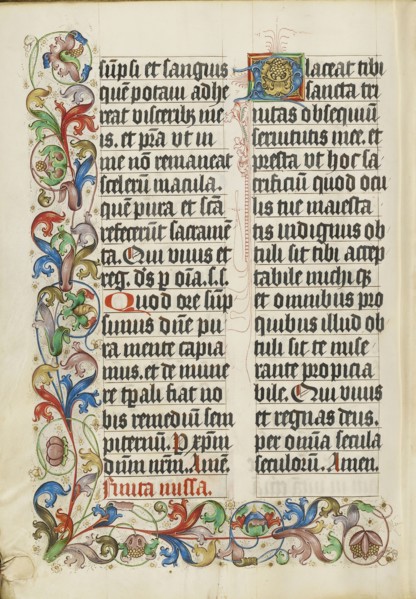 sūpsi et sanguis
quē potaui adhe
reat visceribꝫ me
is. et p̄ra vt in
me nō remaneat
scelerū macula.
quē pura et scā
refecerūt sacramē
ta. Qui viuis et
reg. ds̄ p oīa.s.s.
Quod ore sūp
simus dn̄e pu
ra mente capia
mus. et de mune
re tp̄ali fiat no
bis remediū sem
piternū. P xp̄m
dnūm nrm̄. Amē.
finita missa.
Placeat tibi
sancta tri
nitas obsequiū
seruitutis mee. et
presta vt hoc sa
crificiū quod ocu
lis tue maiesta
tis indignus ob
tuli sit tibi accep
tabile michi qꝫ
et omnibus pro
quibus illud ob
tuli sit te mise
rante propicia
bile. Qui viuis
et regnas deus.
per omnia secula
seculorū. Amen.